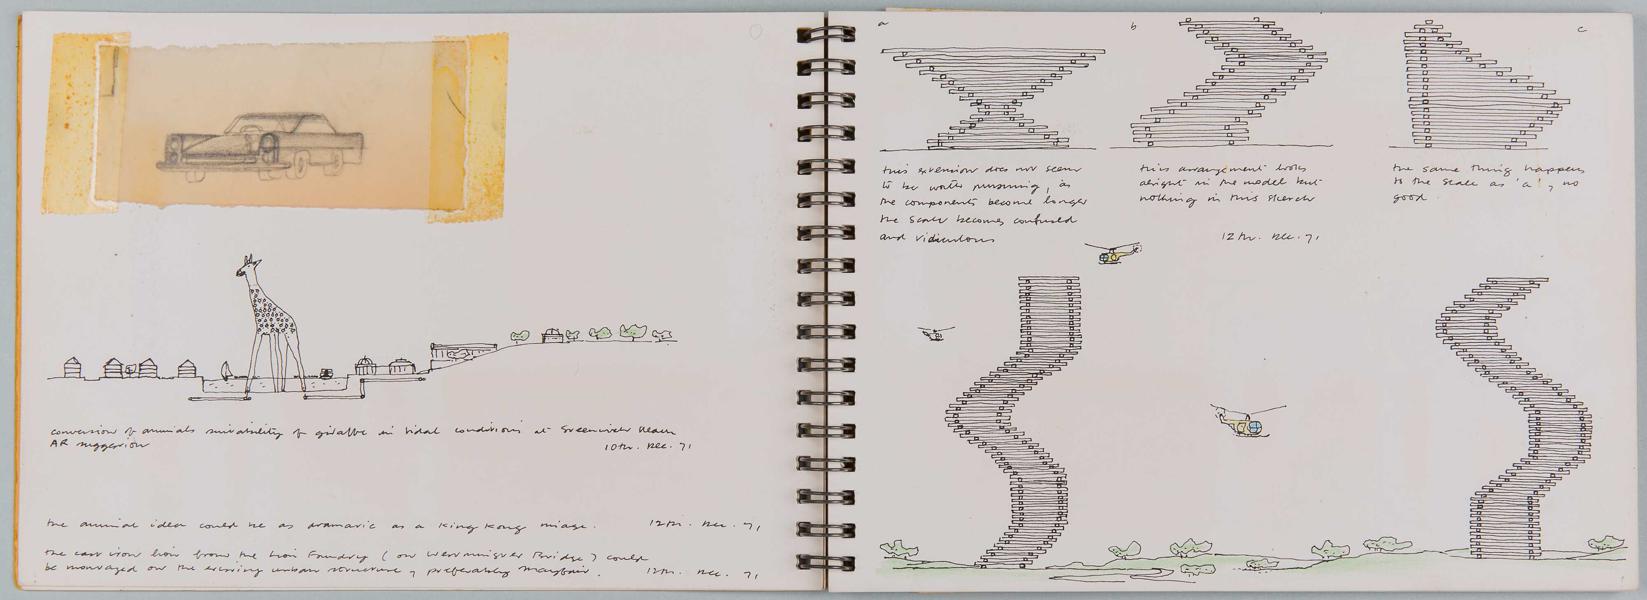 conversion of animals suitability of giraffe in tidal conditions at Greenwich Reach
AR suggestion 10th. Dec. 71
the animal idea could be as dramatic as a King Kong image. 12th. Dec. 71
the cast iron lion from the Lion Foundry (on Westminster Bridge) could
be montaged on the existing urban structure, preferably Mayfair. 12th. Dec. 71
a
this extension does not seem
to be worth pursuing, as
the components become longer
the scale becomes confused
and ridiculous
b
this arrangement looks
alright in the model but
nothing in this sketch
12th. Dec. 71
c
the same thing happens
to the scale as 'a', no
good